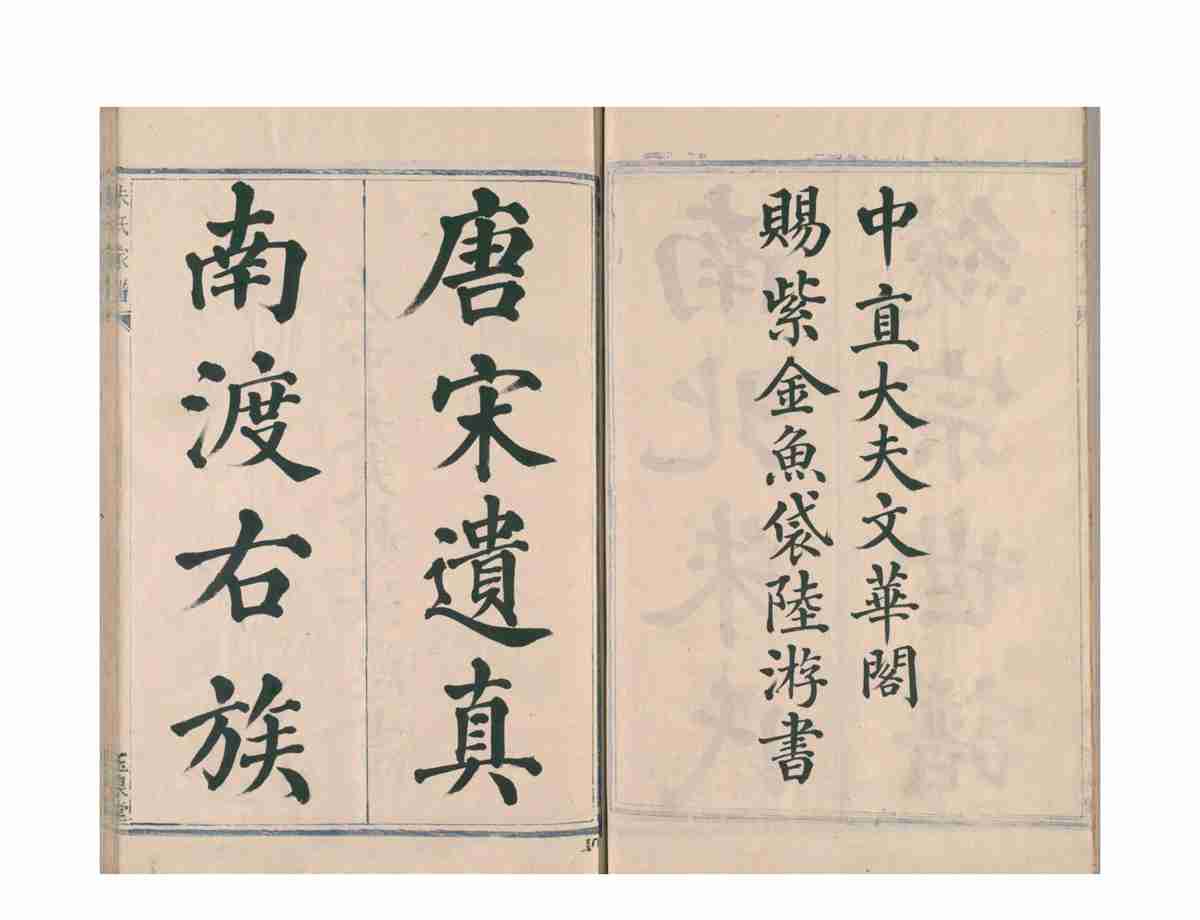 中直大夫文華閣
賜紫金魚袋陸游書
唐宋遺真
南渡右族
朱氏家譜